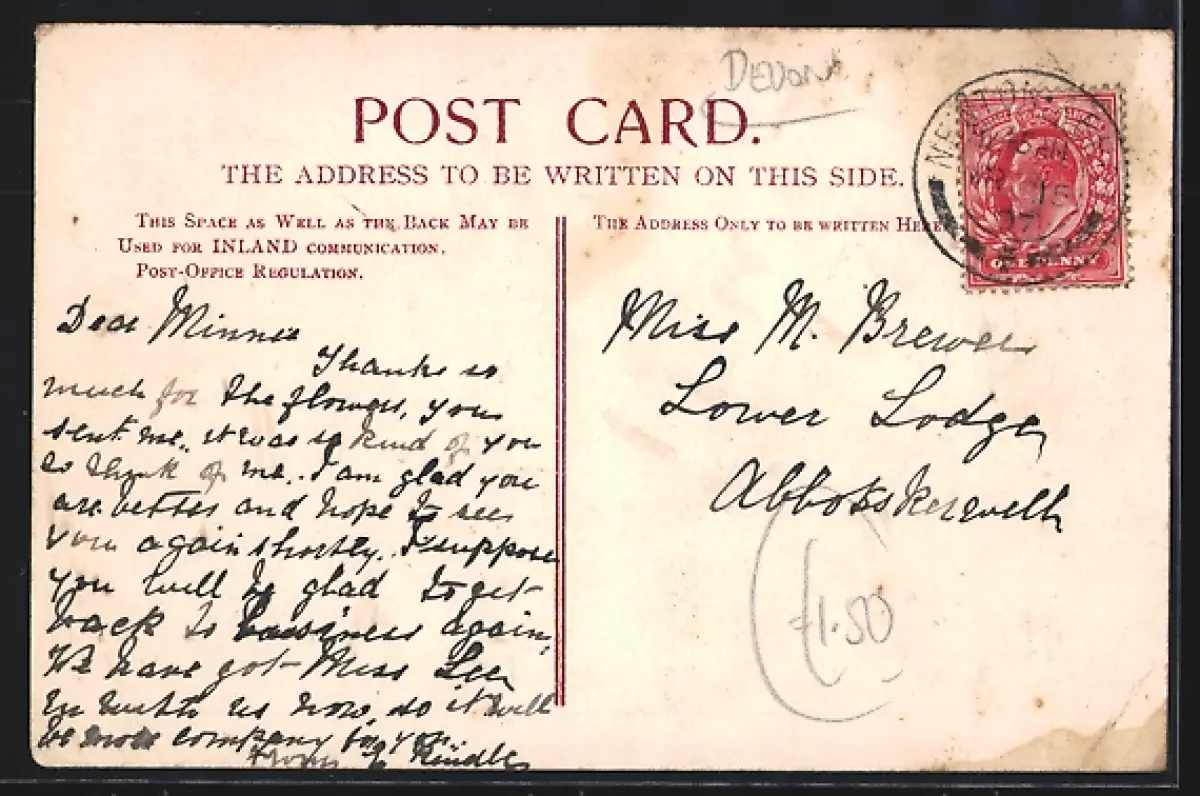 DEVON
POST CARD.
THE ADDRESS TO BE WRITTEN ON THIS SIDE.
THIS SPACE AS WELL AS THE BACK MAY BE
USED FOR INLAND COMMUNICATION.
POST-OFFICE REGULATION.
Dear Minnie
Thanks so
much for the flowers, you
sent me, it was so kind of you
to think of me. I am glad you
are better and hope to see
you again shortly. I suppose
you will be glad to get
back to business again,
We have got Miss Lee
in with us now, so it will
be more company for you.
from E Kindle
THE ADDRESS ONLY TO BE WRITTEN HERE
NEWTON
ONE PENNY
Miss M. Brewer
Lower Lodge
Abbotskerswell
£1.50